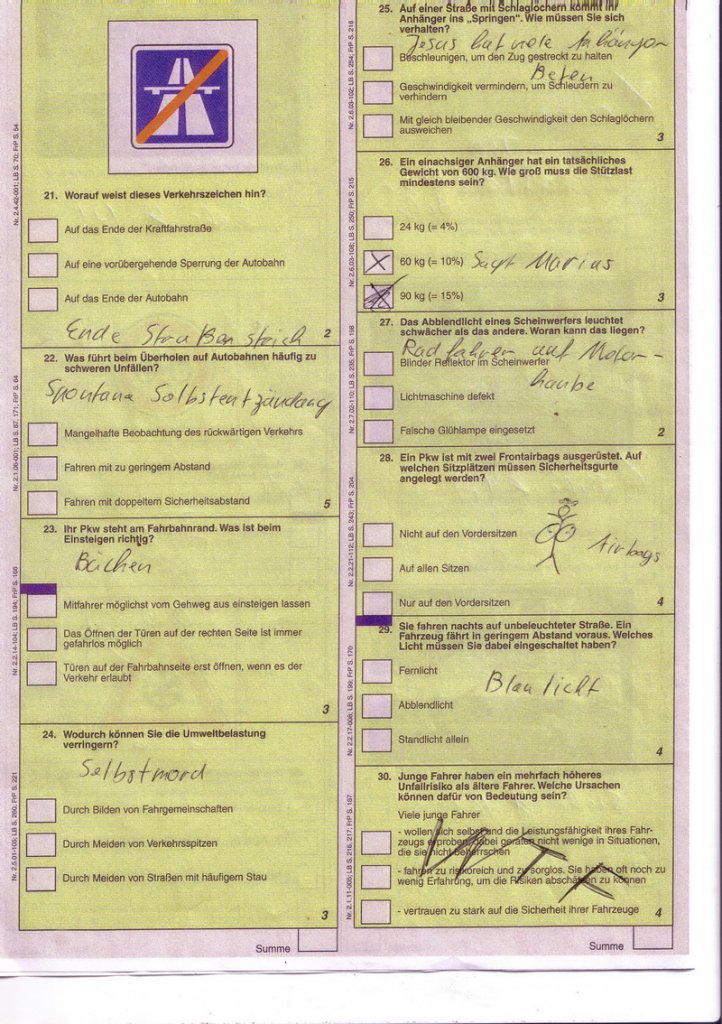 Nr. 2.4.42-001; LB S. 70; FrP S. 64
21. Worauf weist dieses Verkehrszeichen hin?
Auf das Ende der Kraftfahrstraße
Auf eine vorübergehende Sperrung der Autobahn
Auf das Ende der Autobahn
Ende Straßenstrich
2
22. Was führt beim Überholen auf Autobahnen häufig zu
schweren Unfällen?
Spontane Selbstentzündung
Mangelhafte Beobachtung des rückwärtigen Verkehrs
Fahren mit zu geringem Abstand
Fahren mit doppeltem Sicherheitsabstand
5
Nr. 2.1.06-001; LB S. 67, 171; FrP S. 64
23. Ihr Pkw steht am Fahrbahnrand. Was ist beim
Einsteigen richtig?
Bücken
Mitfahrer möglichst vom Gehweg aus einsteigen lassen
Das Öffnen der Türen auf der rechten Seite ist immer
gefahrlos möglich
Türen auf der Fahrbahnseite erst öffnen, wenn es der
Verkehr erlaubt
3
24. Wodurch können Sie die Umweltbelastung
verringern?
Selbstmord
Durch Bilden von Fahrgemeinschaften
Durch Meiden von Verkehrsspitzen
Durch Meiden von Straßen mit häufigem Stau
3
Summe
25. Auf einer Straße mit Schlaglöchern kommt Ihr
Anhänger ins „Springen". Wie müssen Sie sich
verhalten?
Jesus hat viele Anhänger
Beschleunigen, um den Zug gestreckt zu halten
Beten
Geschwindigkeit vermindern, um Schleudern zu
verhindern
Mit gleich bleibender Geschwindigkeit den Schlaglöchern
ausweichen
3
26. Ein einachsiger Anhänger hat ein tatsächliches
Gewicht von 600 kg. Wie groß muss die Stützlast
mindestens sein?
24 kg (= 4%)
60 kg (= 10%) Sagt Marius
90 kg (= 15%)
3
27. Das Abblendlicht eines Scheinwerfers leuchtet
schwächer als das andere. Woran kann das liegen?
Radfahrer auf Motor-
Blinder Reflektor im Scheinwerfer
haube
Lichtmaschine defekt
Falsche Glühlampe eingesetzt
2
28. Ein Pkw ist mit zwei Frontairbags ausgerüstet. Auf
welchen Sitzplätzen müssen Sicherheitsgurte
angelegt werden?
Nicht auf den Vordersitzen
Airbags
Auf allen Sitzen
Nur auf den Vordersitzen
4
29. Sie fahren nachts auf unbeleuchteter Straße. Ein
Fahrzeug fährt in geringem Abstand voraus. Welches
Licht müssen Sie dabei eingeschaltet haben?
Fernlicht
Blaulicht
Abblendlicht
Standlicht allein
4
30. Junge Fahrer haben ein mehrfach höheres
Unfallrisiko als ältere Fahrer. Welche Ursachen
können dafür von Bedeutung sein?
Viele junge Fahrer
- wollen sich selbst und die Leistungsfähigkeit ihres Fahr-
zeugs erproben, dabei geraten nicht wenige in Situationen,
die sie nicht beherrschen
WTF
- fahren zu risikoreich und zu sorglos. Sie haben oft noch zu
wenig Erfahrung, um die Risiken abschätzen zu können
- vertrauen zu stark auf die Sicherheit ihrer Fahrzeuge
4
Summe